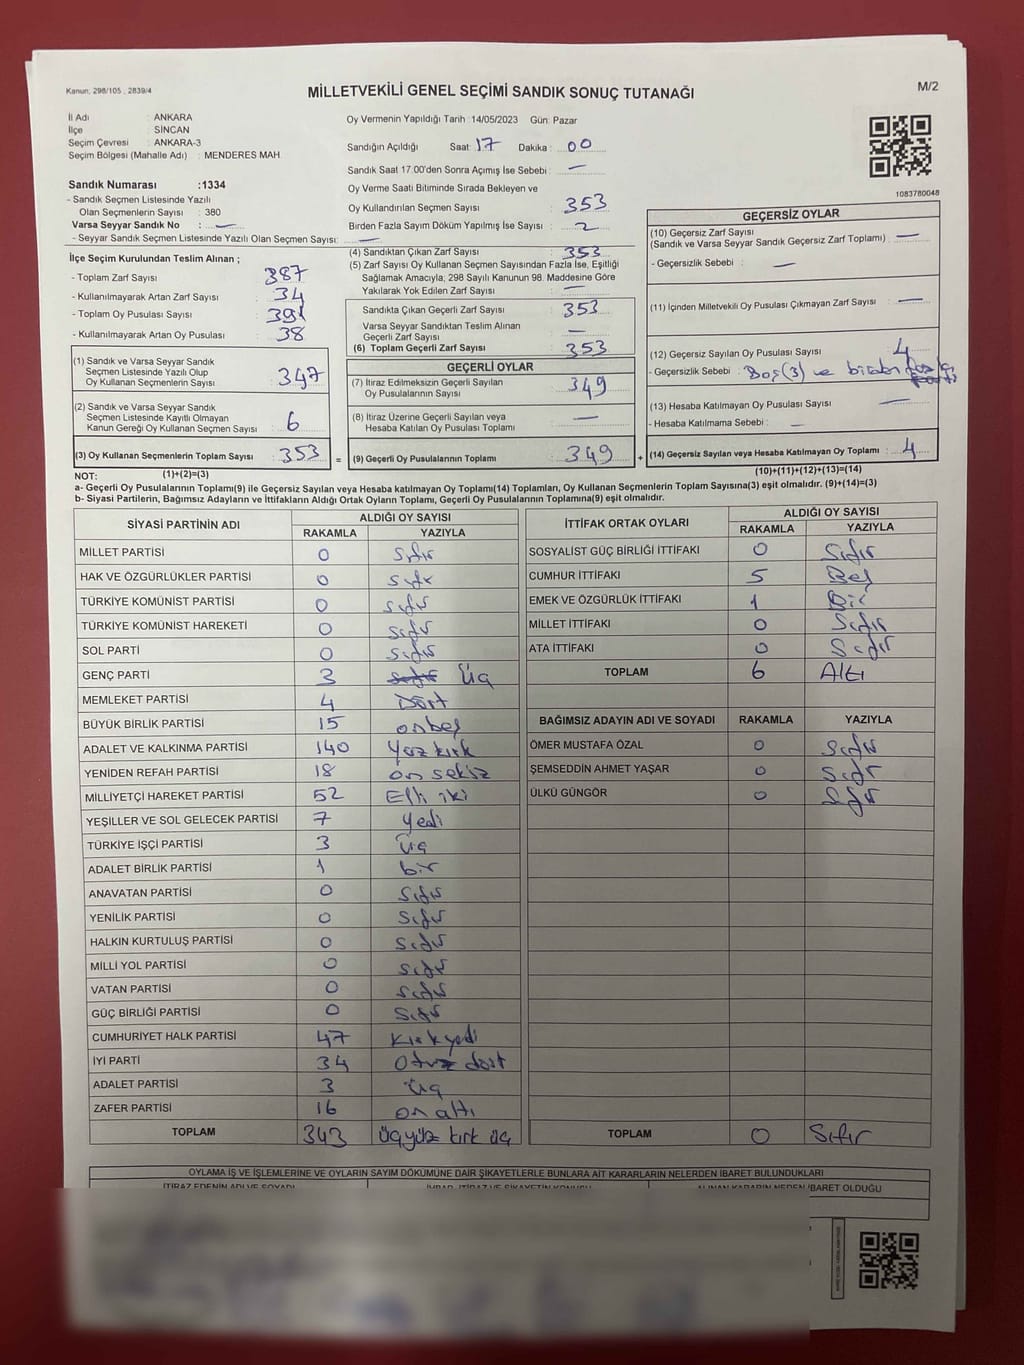 Kanun, 298/105 , 2839/4
MİLLETVEKİLİ GENEL SEÇİMİ SANDIK SONUÇ TUTANAĞI
M/2
İl Adı : ANKARA
İlçe : SİNCAN
Seçim Çevresi : ANKARA-3
Seçim Bölgesi (Mahalle Adı) : MENDERES MAH
Sandık Numarası :1334
- Sandık Seçmen Listesinde Yazılı
Olan Seçmenlerin Sayısı : 380
Varsa Seyyar Sandık No : —
- Seyyar Sandık Seçmen Listesinde Yazılı Olan Seçmen Sayısı: —
İlçe Seçim Kurulundan Teslim Alınan ;
- Toplam Zarf Sayısı 387
- Kullanılmayarak Artan Zarf Sayısı 34
- Toplam Oy Pusulası Sayısı 391
- Kullanılmayarak Artan Oy Pusulası 38
(1) Sandık ve Varsa Seyyar Sandık
Seçmen Listesinde Yazılı Olup
Oy Kullanan Seçmenlerin Sayısı : 347
(2) Sandık ve Varsa Seyyar Sandık
Seçmen Listesinde Kayıtlı Olmayan
Kanun Gereği Oy Kullanan Seçmen Sayısı : 6
(3) Oy Kullanan Seçmenlerin Toplam Sayısı : 353
(1)+(2)=(3)
Oy Vermenin Yapıldığı Tarih :14/05/2023 Gün: Pazar
Sandığın Açıldığı Saat: 17 Dakika : 00
Sandık Saat 17.00'den Sonra Açımış İse Sebebi : —
Oy Verme Saati Bitiminde Sırada Bekleyen ve
Oy Kullandırılan Seçmen Sayısı 353
Birden Fazla Sayım Döküm Yapılmış İse Sayısı : 2
(4) Sandıktan Çıkan Zarf Sayısı : 353
(5) Zarf Sayısı Oy Kullanan Seçmen Sayısından Fazla İse, Eşitliği
Sağlamak Amacıyla; 298 Sayılı Kanunun 98. Maddesine Göre
Yakılarak Yok Edilen Zarf Sayısı : —
Sandıkta Çıkan Geçerli Zarf Sayısı : 353
Varsa Seyyar Sandıktan Teslim Alınan
Geçerli Zarf Sayısı : —
(6) Toplam Geçerli Zarf Sayısı : 353
GEÇERLİ OYLAR
(7) İtiraz Edilmeksizin Geçerli Sayılan
Oy Pusulalarının Sayısı : 349
(8) İtiraz Üzerine Geçerli Sayılan veya
Hesaba Katılan Oy Pusulası Toplamı : —
= (9) Geçerli Oy Pusulalarının Toplamı : 349
1083780048
GEÇERSİZ OYLAR
(10) Geçersiz Zarf Sayısı
(Sandık ve Varsa Seyyar Sandık Geçersiz Zarf Toplamı) : —
- Geçersizlik Sebebi : —
(11) İçinden Milletvekili Oy Pusulası Çıkmayan Zarf Sayısı : —
(12) Geçersiz Sayılan Oy Pusulası Sayısı : 4
- Geçersizlik Sebebi : Boş(3) ve birden fazla
(13) Hesaba Katılmayan Oy Pusulası Sayısı : —
- Hesaba Katılmama Sebebi : —
+ (14) Geçersiz Sayılan veya Hesaba Katılmayan Oy Toplamı : 4
(10)+(11)+(12)+(13)=(14)
NOT:
a- Geçerli Oy Pusulalarının Toplamı(9) ile Geçersiz Sayılan veya Hesaba katılmayan Oy Toplamı(14) Toplamları, Oy Kullanan Seçmenlerin Toplam Sayısına(3) eşit olmalıdır. (9)+(14)=(3)
b- Siyasi Partilerin, Bağımsız Adayların ve İttifakların Aldığı Ortak Oyların Toplamı, Geçerli Oy Pusulalarının Toplamına(9) eşit olmalıdır.
SİYASİ PARTİNİN ADI ALDIĞI OY SAYISI
RAKAMLA YAZIYLA
MİLLET PARTİSİ 0 Sıfır
HAK VE ÖZGÜRLÜKLER PARTİSİ 0 Sıfır
TÜRKİYE KOMÜNİST PARTİSİ 0 Sıfır
TÜRKİYE KOMÜNİST HAREKETİ 0 Sıfır
SOL PARTİ 0 Sıfır
GENÇ PARTİ 3 Sıfır Üç
MEMLEKET PARTİSİ 4 Dört
BÜYÜK BİRLİK PARTİSİ 15 onbeş
ADALET VE KALKINMA PARTİSİ 140 Yüz kırk
YENİDEN REFAH PARTİSİ 18 on sekiz
MİLLİYETÇİ HAREKET PARTİSİ 52 Elli iki
YEŞİLLER VE SOL GELECEK PARTİSİ 7 Yedi
TÜRKİYE İŞÇİ PARTİSİ 3 Üç
ADALET BİRLİK PARTİSİ 1 bir
ANAVATAN PARTİSİ 0 Sıfır
YENİLİK PARTİSİ 0 Sıfır
HALKIN KURTULUŞ PARTİSİ 0 Sıfır
MİLLİ YOL PARTİSİ 0 Sıfır
VATAN PARTİSİ 0 Sıfır
GÜÇ BİRLİĞİ PARTİSİ 0 Sıfır
CUMHURİYET HALK PARTİSİ 47 Kırk yedi
İYİ PARTİ 34 Otuz dört
ADALET PARTİSİ 3 Üç
ZAFER PARTİSİ 16 on altı
TOPLAM 343 üçyüz kırk üç
İTTİFAK ORTAK OYLARI ALDIĞI OY SAYISI
RAKAMLA YAZIYLA
SOSYALİST GÜÇ BİRLİĞİ İTTİFAKI 0 Sıfır
CUMHUR İTTİFAKI 5 Beş
EMEK VE ÖZGÜRLÜK İTTİFAKI 1 Bir
MİLLET İTTİFAKI 0 Sıfır
ATA İTTİFAKI 0 Sıfır
TOPLAM 6 Altı
BAĞIMSIZ ADAYIN ADI VE SOYADI RAKAMLA YAZIYLA
ÖMER MUSTAFA ÖZAL 0 Sıfır
ŞEMSEDDİN AHMET YAŞAR 0 Sıfır
ÜLKÜ GÜNGÖR 0 Sıfır
TOPLAM 0 Sıfır
OYLAMA İŞ VE İŞLEMLERİNE VE OYLARIN SAYIM DÖKÜMÜNE DAİR ŞİKAYETLERLE BUNLARA AİT KARARLARIN NELERDEN İBARET BULUNDUKLARI
İTİRAZ EDENİN ADI VE SOYADI İHBAR, İTİRAZ VE ŞİKAYETİN KONUSU ALINAN KARARIN NEDEN İBARET OLDUĞU